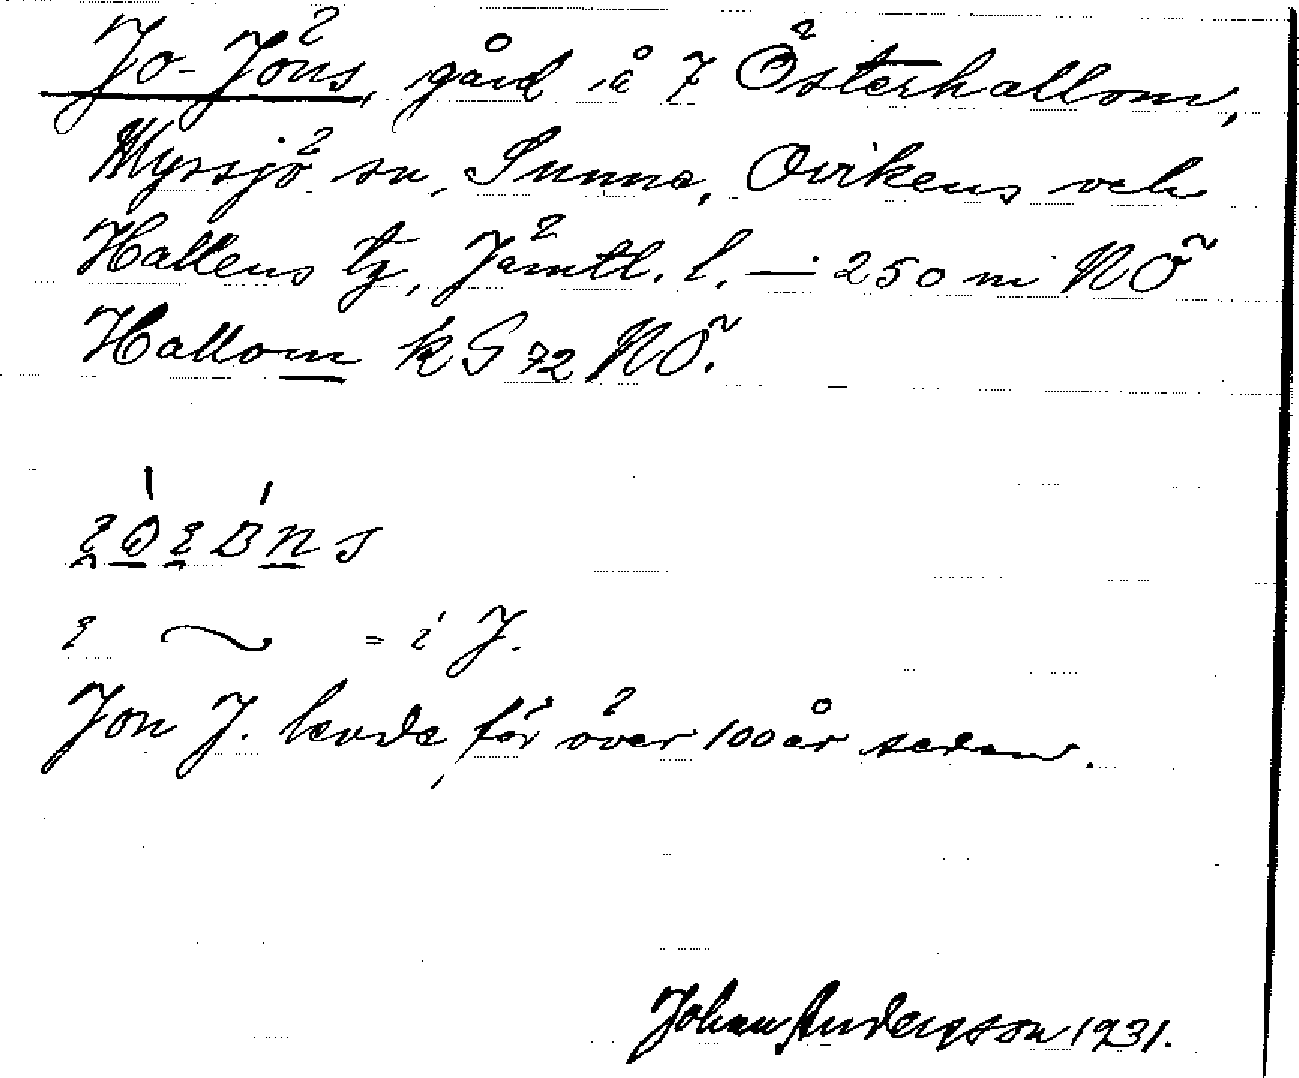 Jo-Jöns, gård å 7 Österhallom,
Myssjö sn, Sunne, Ovikens och
Hallens tg, Jämtl. l. — 250 m NÖ
Hallom k G 72 NÖ.
= i J.
Jon J. levde för över 100 år sedan.
Johan Andersson 1931.